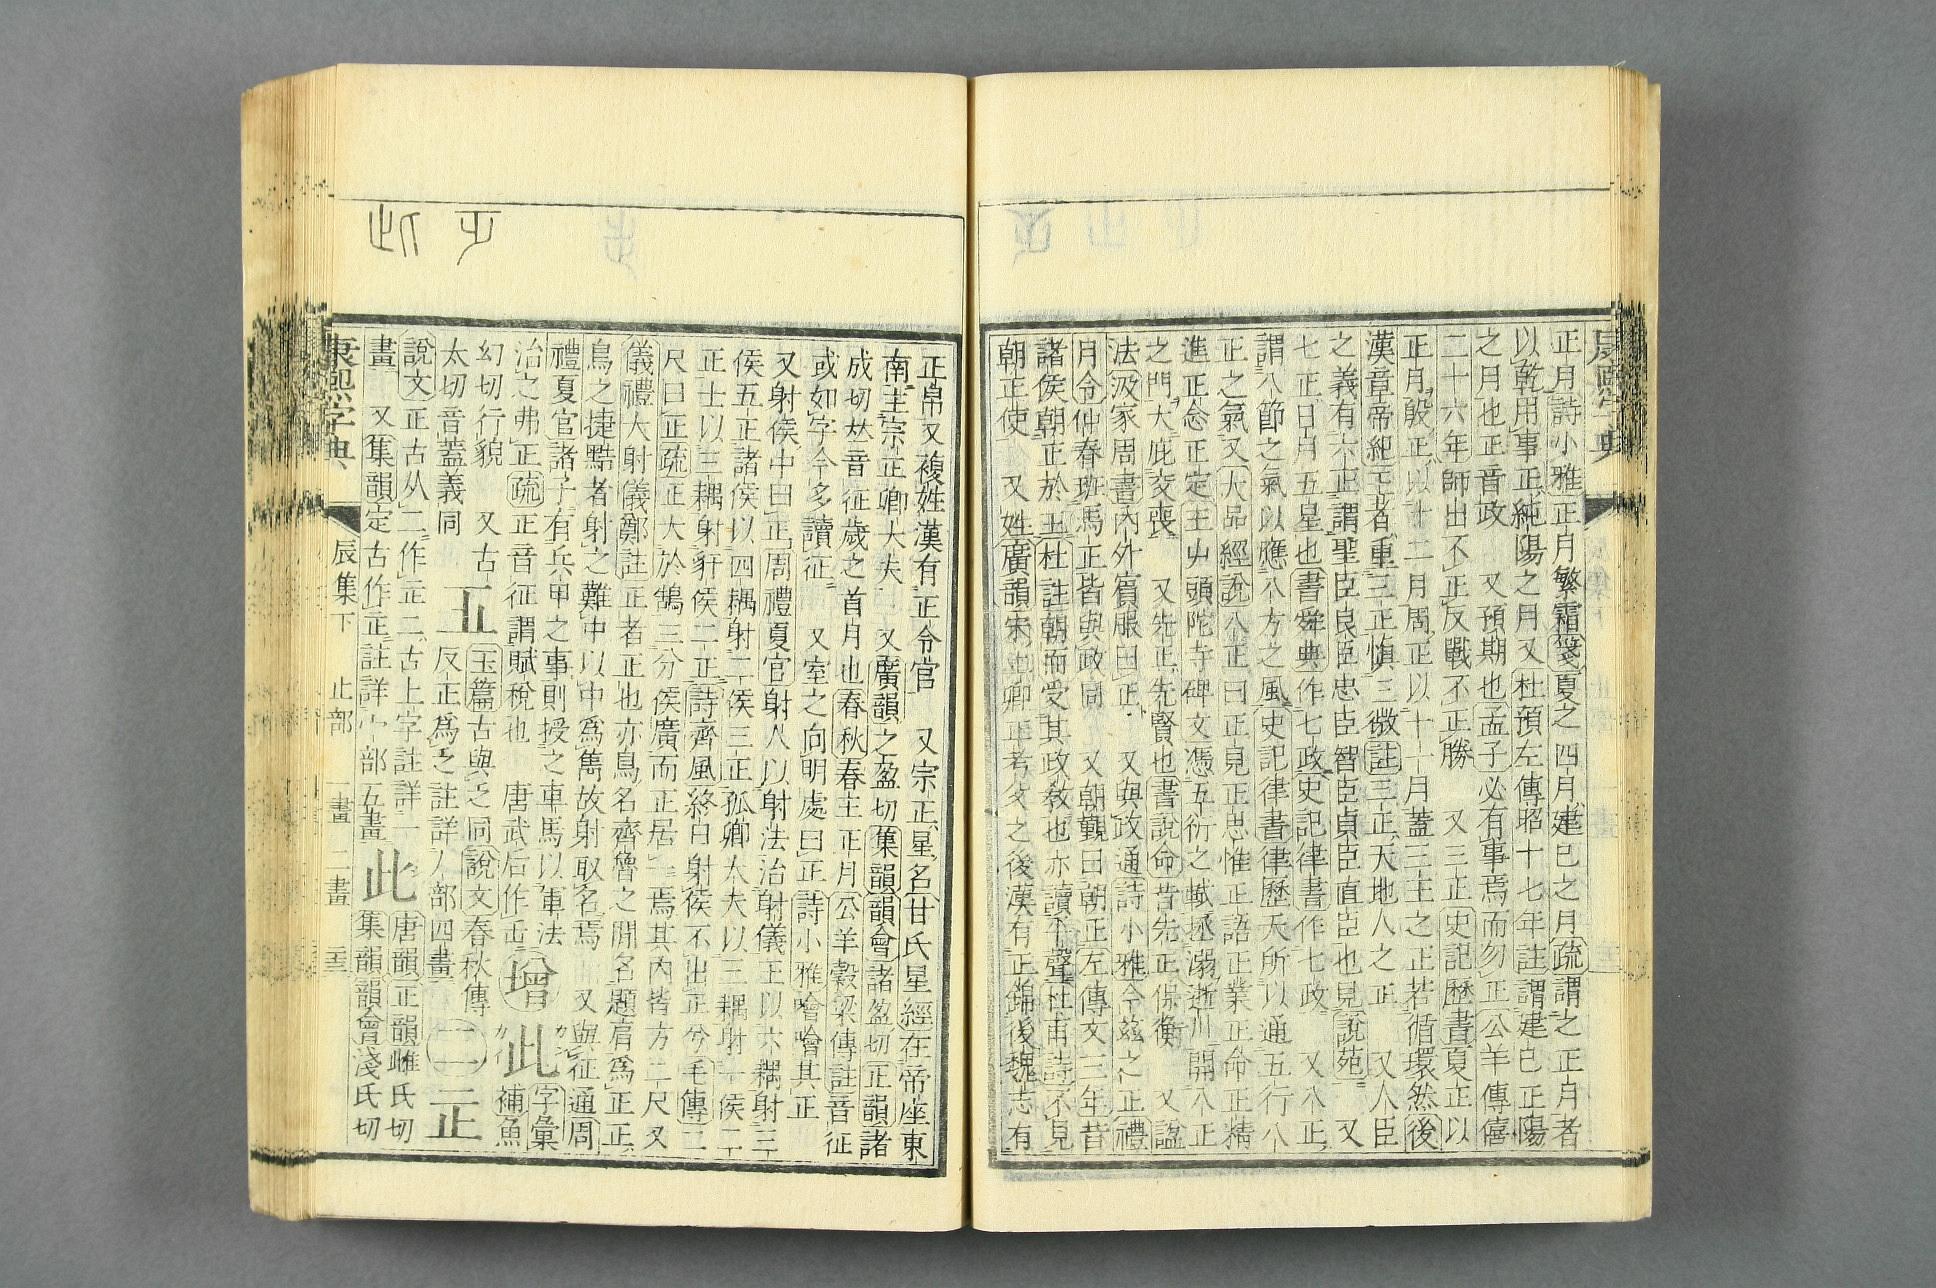 康熙字典
正月詩小雅正月繁霜箋夏之四月建巳之月疏謂之正月者
以乾用事正純陽之月又杜預左傳昭十七年註謂建巳正陽
之月也正音政 又預期也孟子必有事焉而勿正公羊傳僖
二十六年師出不正反戰不正勝 又三正史記歷書夏正以
正月殷正以十二月周正以十一月蓋三王之正若循環然後
漢章帝紀王者重三正愼三微註三正天地人之正 又人臣
之義有六正謂聖臣良臣忠臣智臣貞臣直臣也見說苑 又
七正日月五星也書舜典作七政史記律書作七政 又八正
謂八節之氣以應八方之風史記律書律歷天所以通五行八
正之氣又大品經說八正曰正見正思惟正語正業正命正精
進正念正定王屮頭陀寺碑文憑五衍之軾拯溺逝川開八正
之門大庇交喪 又先正先賢也書說命昔先正保衡 又諡
法汲家周書內外賓服曰正 又與政通詩小雅今茲之正禮
月令仲春班馬正皆與政同 又朝覲曰朝正左傳文三年昔
諸侯朝正於王杜註朝而受其政敎也亦讀平聲杜甫詩不見
朝正使 又姓廣韻宋上卿正考父之後漢有正錦後魏志有
正帛又複姓漢有正令官 又宗正星名甘氏星經在帝座東
南主宗正卿大夫 又廣韻之盈切集韻韻會諸盈切正韻諸
成切𠀤音征歲之首月也春秋春王正月公羊穀梁傳註音征
或如字今多讀征 又室之向明處曰正詩小雅噲噲其正
又射侯中曰正周禮夏官射人以射法治射儀王以六耦射三
侯五正諸侯以四耦射二侯三正孤卿大夫以三耦射一侯二
正士以三耦射豻侯二正詩齊風終日射侯不出正兮毛傳二
尺曰正疏正大於鵠三分侯廣而正居一焉其內皆方二尺又
儀禮大射儀鄭註正者正也亦鳥名齊魯之閒名題肩爲正正
鳥之捷黠者射之難中以中爲雋故射取名焉 又與征通周
禮夏官諸子有兵甲之事則授之車馬以軍法
治之弗正疏正音征謂賦稅也 唐武后作𠙺 增 此 字彙
補魚
幻切行貌 又古
太切音蓋義同 𤴓 玉篇古與乏同說文春秋傳
反正爲乏註詳丿部四畫 一 二 正
說文正古从二作𤴓二古上字註詳一
畫 又集韻定古作正註詳宀部五畫 此 唐韻正韻雌氏切
集韻韻會淺氏切
康熙字典 辰集下 止部 一畫 二畫